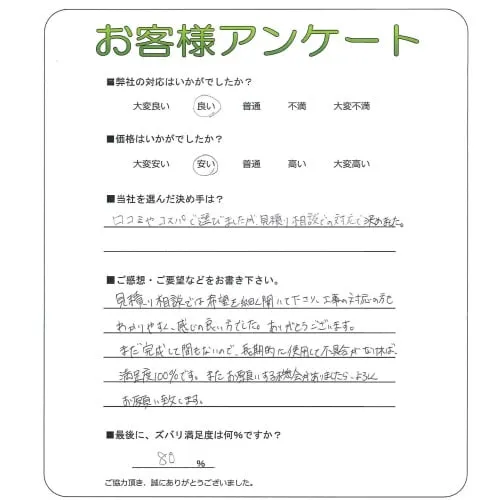 お客様アンケート
■弊社の対応はいかがでしたか？
大変良い 良い 普通 不満 大変不満
■価格はいかがでしたか？
大変安い 安い 普通 高い 大変高い
■当社を選んだ決め手は？
口コミやコスパで選びましたが、見積り相談での対応で決めました。
■ご感想・ご要望などをお書き下さい。
見積り相談では希望を細く聞いて下さり、工事の対応の方も
わかりやすく、感じの良い方でした。ありがとうございます。
まだ完成して間もないので、長期的に使用して不具合がなければ、
満足度100%です。またお願いする機会がありましたら、よろしく
お願い致します。
■最後に、ズバリ満足度は何%ですか？
80 %
ご協力頂き、誠にありがとうございました。